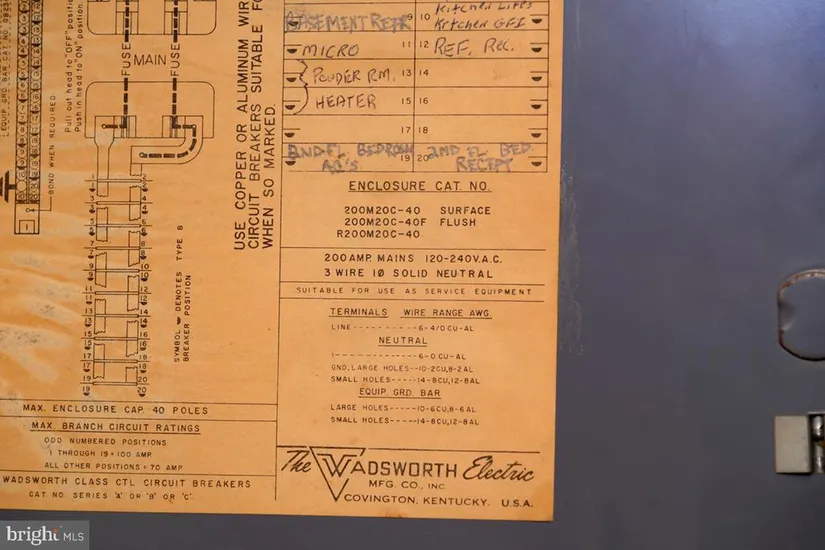 EQUIP. GRD. BAR CAT NO.
BOND WHEN REQUIRED
Pull out head to "OFF" position.
Push in head to "ON" position.
FUSE
MAIN
FUSE
USE COPPER OR ALUMINUM WIRE
CIRCUIT BREAKERS SUITABLE FO
WHEN SO MARKED.
SYMBOL DENOTES TYPE B
BREAKER POSITION
1 2
3 4
5 6
7 8
9 10
11 12
13 14
15 16
17 18
19 20
MAX. ENCLOSURE CAP. 40 POLES
MAX. BRANCH CIRCUIT RATINGS
ODD NUMBERED POSITIONS
1 THROUGH 19 = 100 AMP.
ALL OTHER POSITIONS = 70 AMP.
WADSWORTH CLASS CTL CIRCUIT BREAKERS
CAT NO. SERIES 'A' OR 'B' OR 'C'
BASEMENT REFR 9 10 Kitchen Lites
Kitchen GFI
MICRO 11 12 REF. REC.
POWDER RM. 13 14
HEATER 15 16
17 18
2ND FL BEDROOM 19 20 2ND FL BED.
AC'S RECEPT
ENCLOSURE CAT. NO.
200M20C-40 SURFACE
200M20C-40F FLUSH
R200M20C-40
200 AMP. MAINS 120-240V.A.C.
3 WIRE 1Ø SOLID NEUTRAL
SUITABLE FOR USE AS SERVICE EQUIPMENT
TERMINALS WIRE RANGE AWG.
LINE----------6-4/0 CU-AL
NEUTRAL
1--------------6-0 CU-AL
GND, LARGE HOLES--10-2CU,8-2AL
SMALL HOLES----14-8CU,12-8AL
EQUIP. GRD. BAR
LARGE HOLES-----10-6CU,8-6AL
SMALL HOLES-----14-8CU,12-8AL
The WADSWORTH Electric
MFG. CO., INC.
COVINGTON, KENTUCKY. U.S.A.
bright MLS